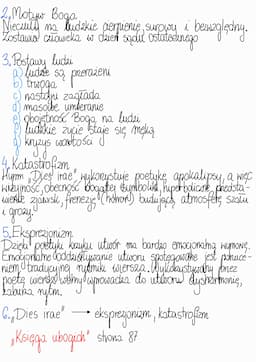 2. Motyw Boga
Nieczuły na ludzkie cierpienie, surowy i bezwzględny.
Zostawia człowieka w dzień sądu ostatecznego
3. Postawy ludu
a) ludzie są przerażeni
b) trwoga
c) nastąpi zagłada
d) masowe umieranie
e) obojętność Boga na ludu
f) ludzkie życie staje się męką
g) kryzys wartości
4. Katastrofizm
Hymn "Dies irae" wykorzystuje poetykę apokalipsy, a więc
wizyjność, obecność bogatej symboliki, hiperboliczne przedsta-
wienie zjawisk, frenezję (horror) budującą atmosferę szału
i grozy.
5. Ekspresjonizm
Dzięki poetyki krzyku utwór ma bardzo emocjonalną wymowę.
Emocjonalne oddziaływanie utworu spotęgowane jest
tradycyjnej rytmiki wiersza. Wykorzystywany przez
poetę wiersz wolny wprowadza do utworu dysharmonię,
zaburza rytm.
6. "Dies irae" → ekspresjonizm, katastrofizm
"Księga ubogich" strona 87